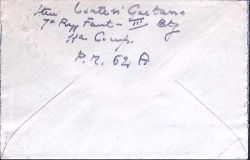 Cortesi Gaetano
7° Regg Fant - III Btg
11a Comp.
P.M. 62 A